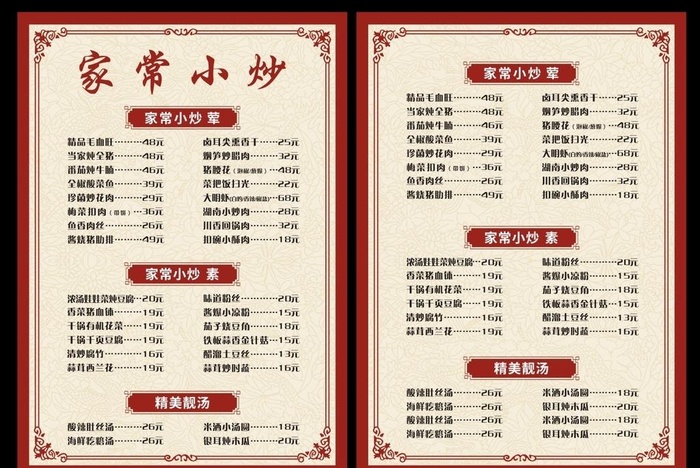 家常小炒
家常小炒 荤
精品毛血旺………48元 卤耳尖熏香干……25元
当家炖全猪………48元 烟笋炒腊肉………32元
番茄炖牛腩………46元 猪腰花(泡椒/爆)…48元
全椒酸菜鱼………39元 菜把饭扫光………22元
珍菌炒花肉………29元 大明虾(白灼/香辣/椒盐)…68元
梅菜扣肉(带饼)…36元 湖南小炒肉………28元
鱼香肉丝…………26元 川香回锅肉………32元
酱烧猪肋排………49元 扣碗小酥肉………18元
家常小炒 素
浓汤娃娃菜炖豆腐…20元 味道粉丝…………20元
香菜猪血钵………19元 酱爆小凉粉………15元
干锅有机花菜……19元 茄子烧豆角………18元
干锅千页豆腐……19元 铁板蒜香金针菇…15元
清炒腐竹…………16元 醋溜土豆丝………13元
蒜茸西兰花………19元 蒜茸炒时蔬………16元
精美靓汤
酸辣肚丝汤………26元 米酒小汤圆………18元
海鲜疙瘩汤………26元 银耳炖木瓜………20元
家常小炒 荤
精品毛血旺………48元 卤耳尖熏香干……25元
当家炖全猪………48元 烟笋炒腊肉………32元
番茄炖牛腩………46元 猪腰花(泡椒/爆)…48元
全椒酸菜鱼………39元 菜把饭扫光………22元
珍菌炒花肉………29元 大明虾(白灼/香辣/椒盐)…68元
梅菜扣肉(带饼)…36元 湖南小炒肉………28元
鱼香肉丝…………26元 川香回锅肉………32元
酱烧猪肋排………49元 扣碗小酥肉………18元
家常小炒 素
浓汤娃娃菜炖豆腐…20元 味道粉丝…………20元
香菜猪血钵………19元 酱爆小凉粉………15元
干锅有机花菜……19元 茄子烧豆角………18元
干锅千页豆腐……19元 铁板蒜香金针菇…15元
清炒腐竹…………16元 醋溜土豆丝………13元
蒜茸西兰花………19元 蒜茸炒时蔬………16元
精美靓汤
酸辣肚丝汤………26元 米酒小汤圆………18元
海鲜疙瘩汤………26元 银耳炖木瓜………20元